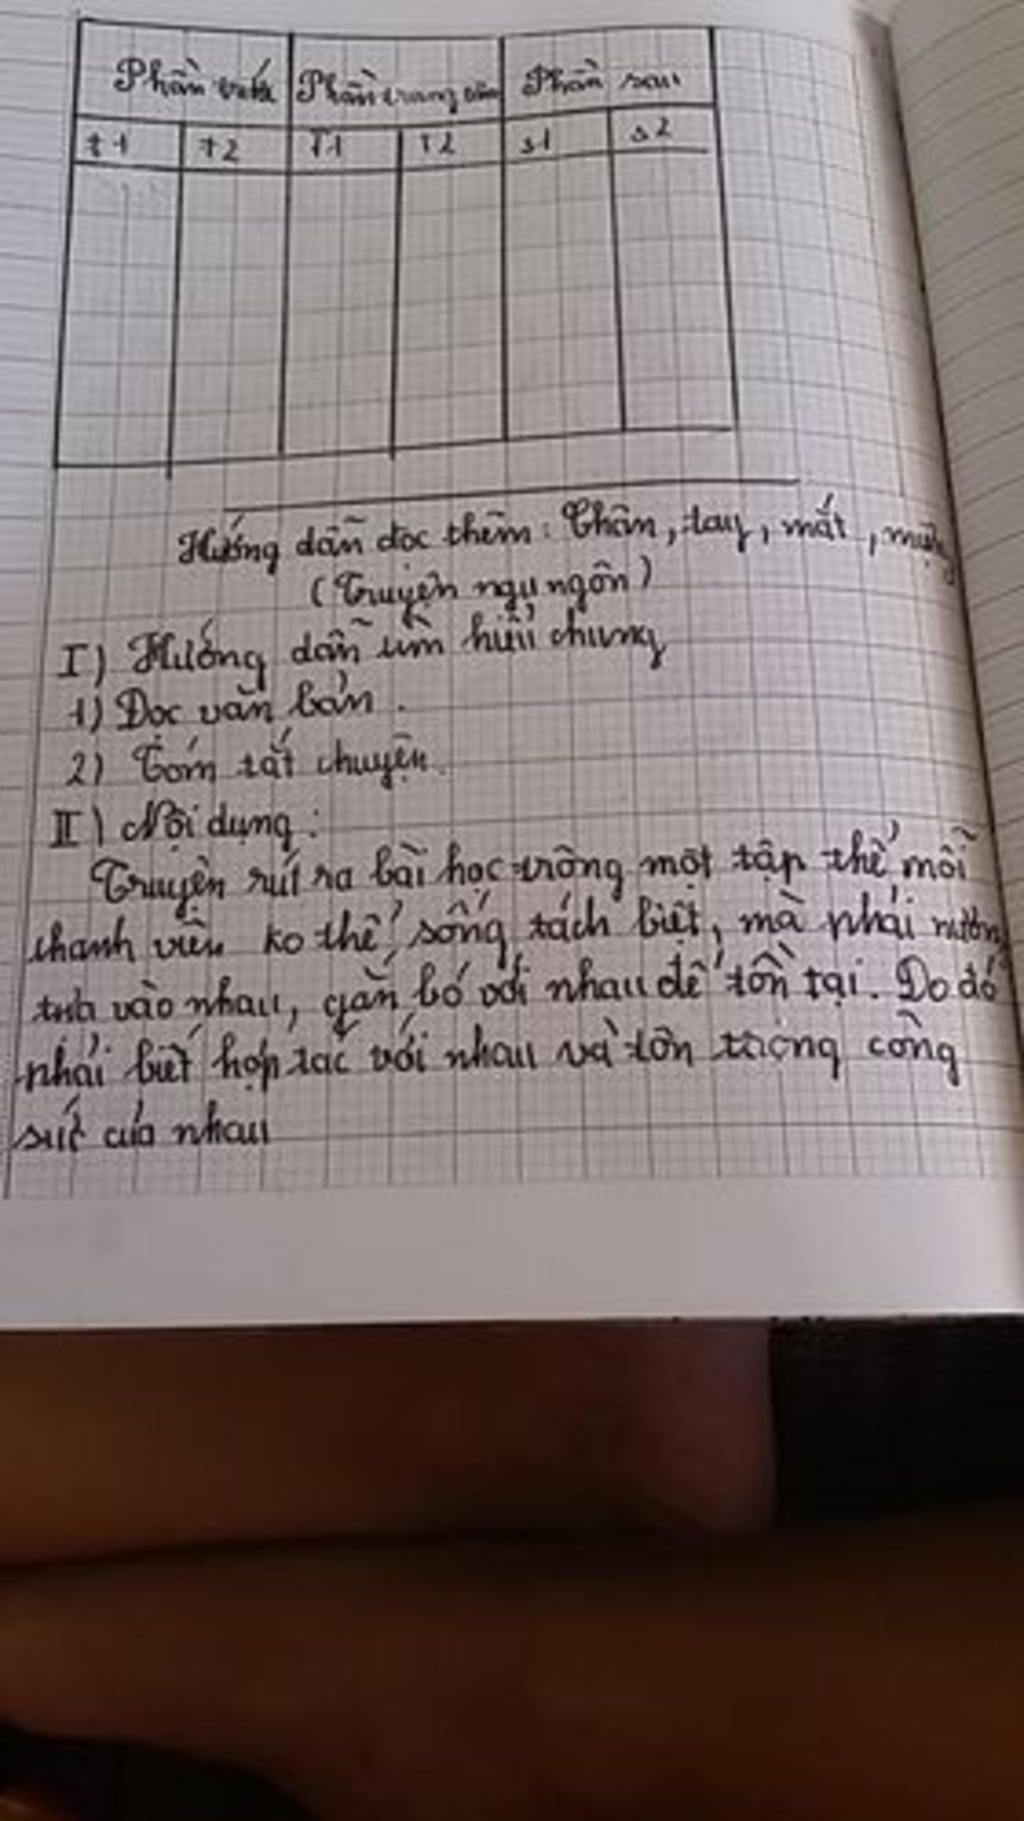 Phần trước Phần trung tâm Phần sau
t1 t2 T1 T2 s1 s2
Hướng dẫn đọc thêm: Chân, tay, mắt, miệng
(Truyện ngụ ngôn)
I) Hướng dẫn tìm hiểu chung
1) Đọc văn bản.
2) Tóm tắt chuyện.
II) Nội dụng:
Truyện rút ra bài học trông một tập thể mỗi
thanh viên ko thể sống tách biệt, mà phải nương
tựa vào nhau, gắn bó với nhau để tồn tại. Do đó
phải biết hợp tác với nhau và tôn trọng công
sức của nhau